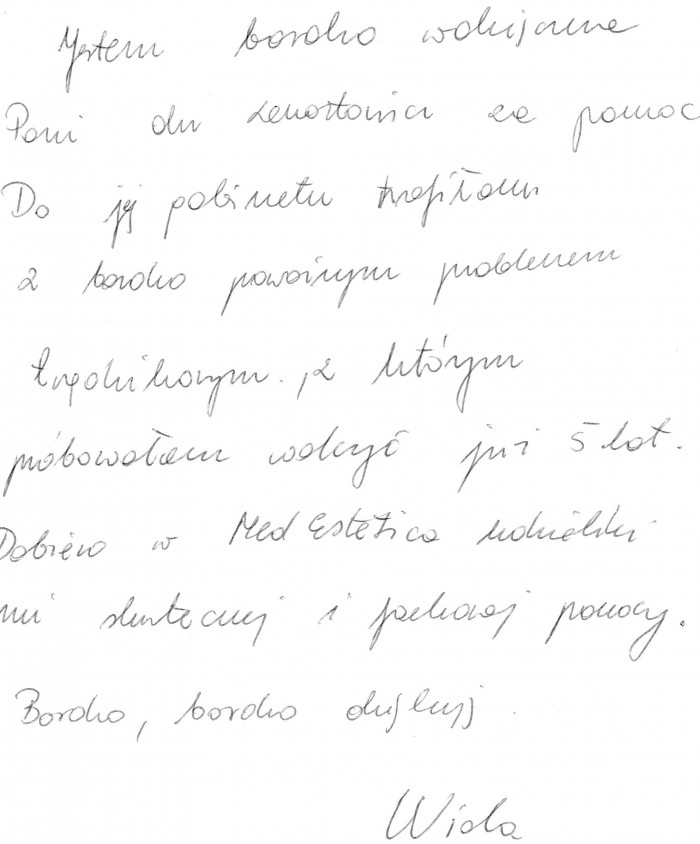 Jestem bardzo wdzięczna
Pani dr za pomoc
Do jej gabinetu trafiłam
z bardzo poważnym problemem
trądzikowym, z którym
próbowałam walczyć już 5 lat.
Dopiero w Med Estetica udzielili
mi skutecznej i fachowej pomocy.
Bardzo, bardzo dziękuję
Wiola